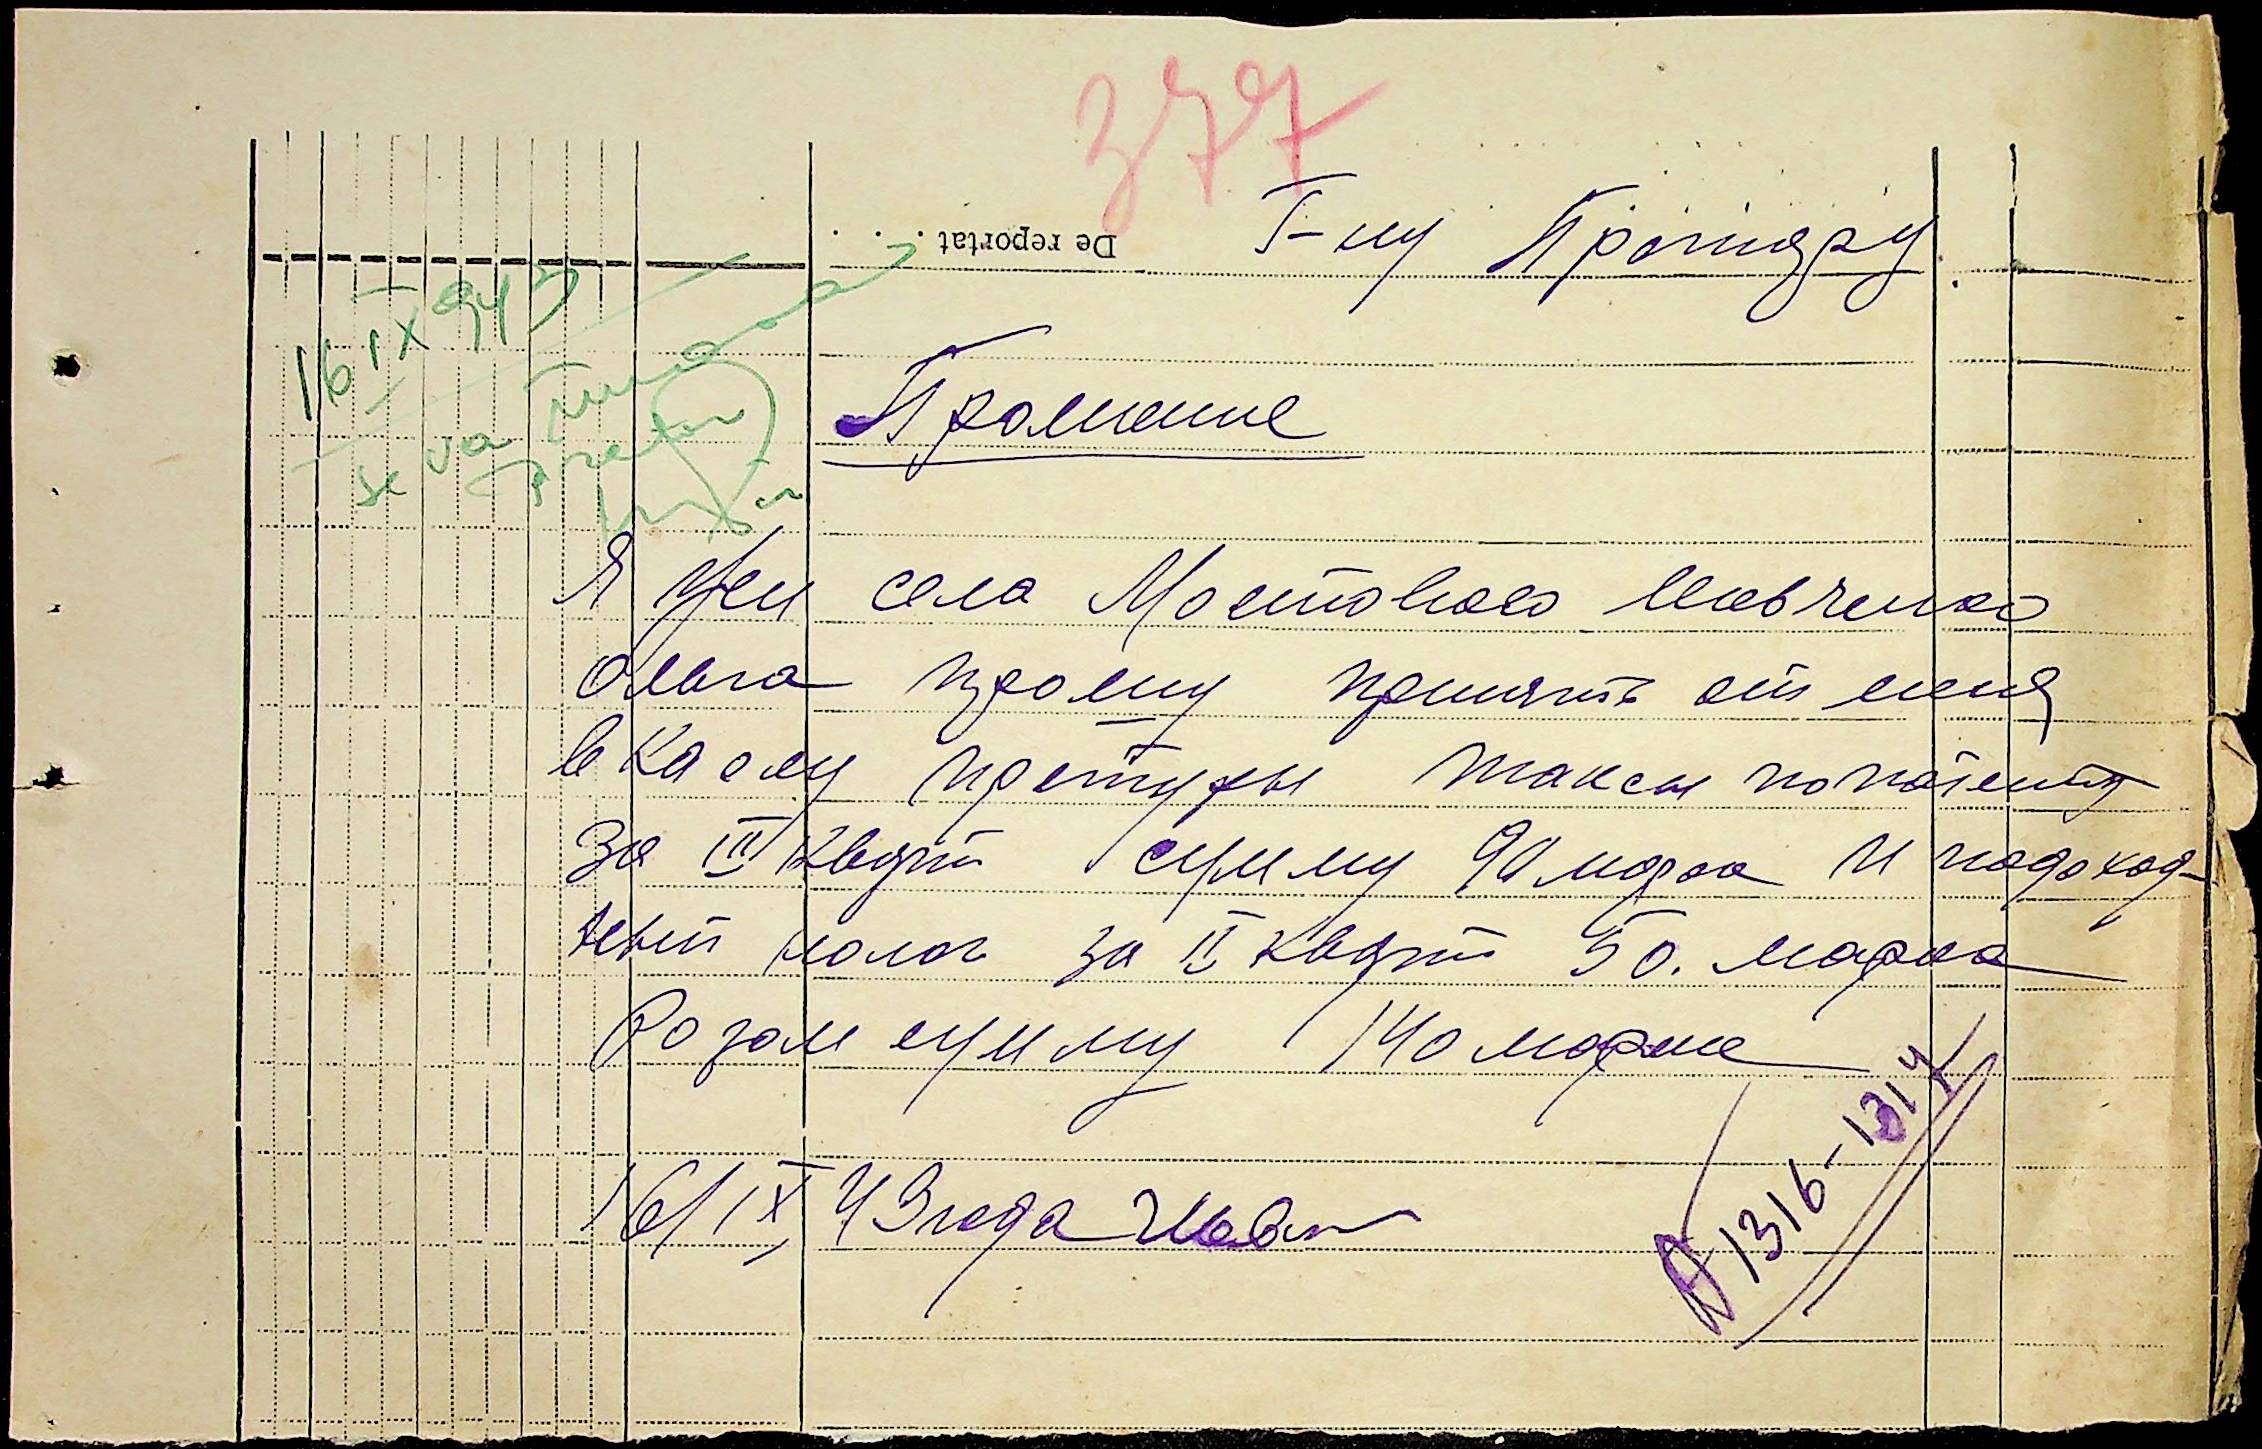 377
De reportat
Г-ну Претяру
16 IX 943
se va
Прошение
Я жен села Мостового Шевченко
Ольга прошу принять от меня
в Касу претуры таксы по патента
за III кварт сумму 90 марок и подоход-
ный налог за II кварт 50. марок
Разом сумму 140 марок
16/IX 43 года Шев
1316-1317